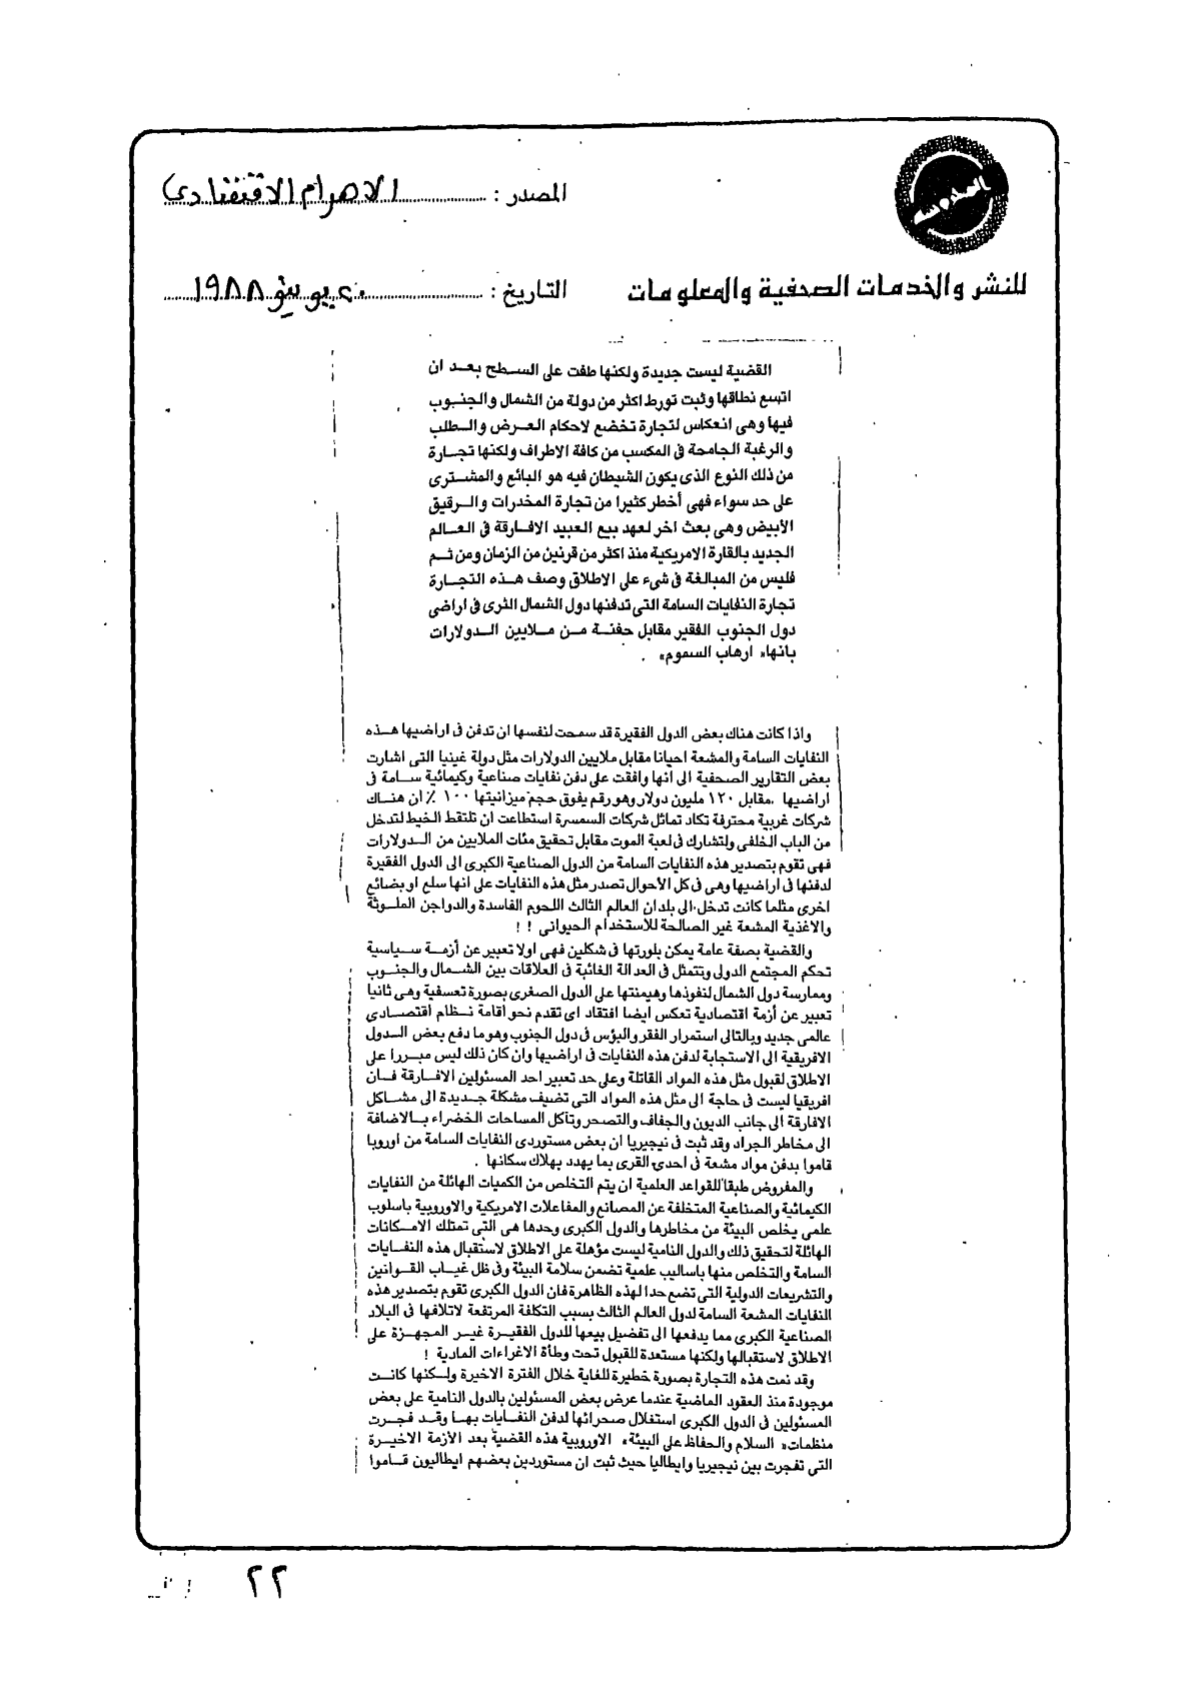 المصدر : الاهرام الاقتصادى
للنشر والخدمات الصحفية والمعلومات
التاريخ : ٢٠ يونيو ١٩٨٨
القضية ليست جديدة ولكنها طفت على السطح بعد ان
اتسع نطاقها وثبت تورط اكثر من دولة من الشمال والجنوب
فيها وهى انعكاس لتجارة تخضع لاحكام العرض والطلب
والرغبة الجامحة فى المكسب من كافة الاطراف ولكنها تجارة
من ذلك النوع الذى يكون الشيطان فيه هو البائع والمشترى
على حد سواء فهى أخطر كثيرا من تجارة المخدرات والرقيق
الأبيض وهى بعث اخر لعهد بيع العبيد الافارقة فى العالم
الجديد بالقارة الامريكية منذ اكثر من قرنين من الزمان ومن ثم
فليس من المبالغة فى شىء على الاطلاق وصف هذه التجارة
تجارة النفايات السامة التى تدفنها دول الشمال الثرى فى اراضى
دول الجنوب الفقير مقابل حفنة من ملايين الدولارات
بانها « ارهاب السموم » .
واذا كانت هناك بعض الدول الفقيرة قد سمحت لنفسها ان تدفن فى اراضيها هذه
النفايات السامة والمشعة احيانا مقابل ملايين الدولارات مثل دولة غينيا التى اشارت
بعض التقارير الصحفية الى انها وافقت على دفن نفايات صناعية وكيمائية سامة فى
اراضيها . مقابل ١٢٠ مليون دولار وهو رقم يفوق حجم ميزانيتها ١٠٠ ٪ ان هناك
شركات غربية محترفة تكاد تماثل شركات السمسرة استطاعت ان تلتقط الخيط لتدخل
من الباب الخلفى ولتشارك فى لعبة الموت مقابل تحقيق مئات الملايين من الدولارات
فهى تقوم بتصدير هذه النفايات السامة من الدول الصناعية الكبرى الى الدول الفقيرة
لدفنها فى اراضيها وهى فى كل الأحوال تصدر مثل هذه النفايات على انها سلع او بضائع
اخرى مثلما كانت تدخل الى بلدان العالم الثالث اللحوم الفاسدة والدواجن الملوثة
والاغذية المشعة غير الصالحة للاستخدام الحيوانى ! !
والقضية بصفة عامة يمكن بلورتها فى شكلين فهى اولا تعبير عن أزمة سياسية
تحكم المجتمع الدولى وتتمثل فى العدالة الغائبة فى العلاقات بين الشمال والجنوب
وممارسة دول الشمال لنفوذها وهيمنتها على الدول الصغرى بصورة تعسفية وهى ثانيا
تعبير عن أزمة اقتصادية تعكس ايضا افتقاد اى تقدم نحو اقامة نظام اقتصادى
عالمى جديد وبالتالى استمرار الفقر والبؤس فى دول الجنوب وهو ما دفع بعض الدول
الافريقية الى الاستجابة لدفن هذه النفايات فى اراضيها وان كان ذلك ليس مبررا على
الاطلاق لقبول مثل هذه المواد القاتلة وعلى حد تعبير احد المسئولين الافارقة فان
افريقيا ليست فى حاجة الى مثل هذه المواد التى تضيف مشكلة جديدة الى مشاكل
الافارقة الى جانب الديون والجفاف والتصحر وتآكل المساحات الخضراء بالاضافة
الى مخاطر الجراد وقد ثبت فى نيجيريا ان بعض مستوردى النفايات السامة من اوروبا
قاموا بدفن مواد مشعة فى احدى القرى بما يهدد بهلاك سكانها .
والمفروض طبقا للقواعد العلمية ان يتم التخلص من الكميات الهائلة من النفايات
الكيمائية والصناعية المتخلفة عن المصانع والمفاعلات الامريكية والاوروبية باسلوب
علمى يخلص البيئة من مخاطرها والدول الكبرى وحدها هى التى تمتلك الامكانات
الهائلة لتحقيق ذلك والدول النامية ليست مؤهلة على الاطلاق لاستقبال هذه النفايات
السامة والتخلص منها باساليب علمية تضمن سلامة البيئة وفى ظل غياب القوانين
والتشريعات الدولية التى تضع حدا لهذه الظاهرة فان الدول الكبرى تقوم بتصدير هذه
النفايات المشعة السامة لدول العالم الثالث بسبب التكلفة المرتفعة لاتلافها فى البلاد
الصناعية الكبرى مما يدفعها الى تفضيل بيعها للدول الفقيرة غير المجهزة على
الاطلاق لاستقبالها ولكنها مستعدة للقبول تحت وطأة الاغراءات المادية !
وقد نمت هذه التجارة بصورة خطيرة للغاية خلال الفترة الاخيرة ولكنها كانت
موجودة منذ العقود الماضية عندما عرض بعض المسئولين بالدول النامية على بعض
المسئولين فى الدول الكبرى استغلال صحرائها لدفن النفايات بها وقد فجرت
منظمات « السلام والحفاظ على البيئة » الاوروبية هذه القضية بعد الأزمة الاخيرة
التى تفجرت بين نيجيريا وايطاليا حيث ثبت ان مستوردين بعضهم ايطاليون قاموا
٢٢